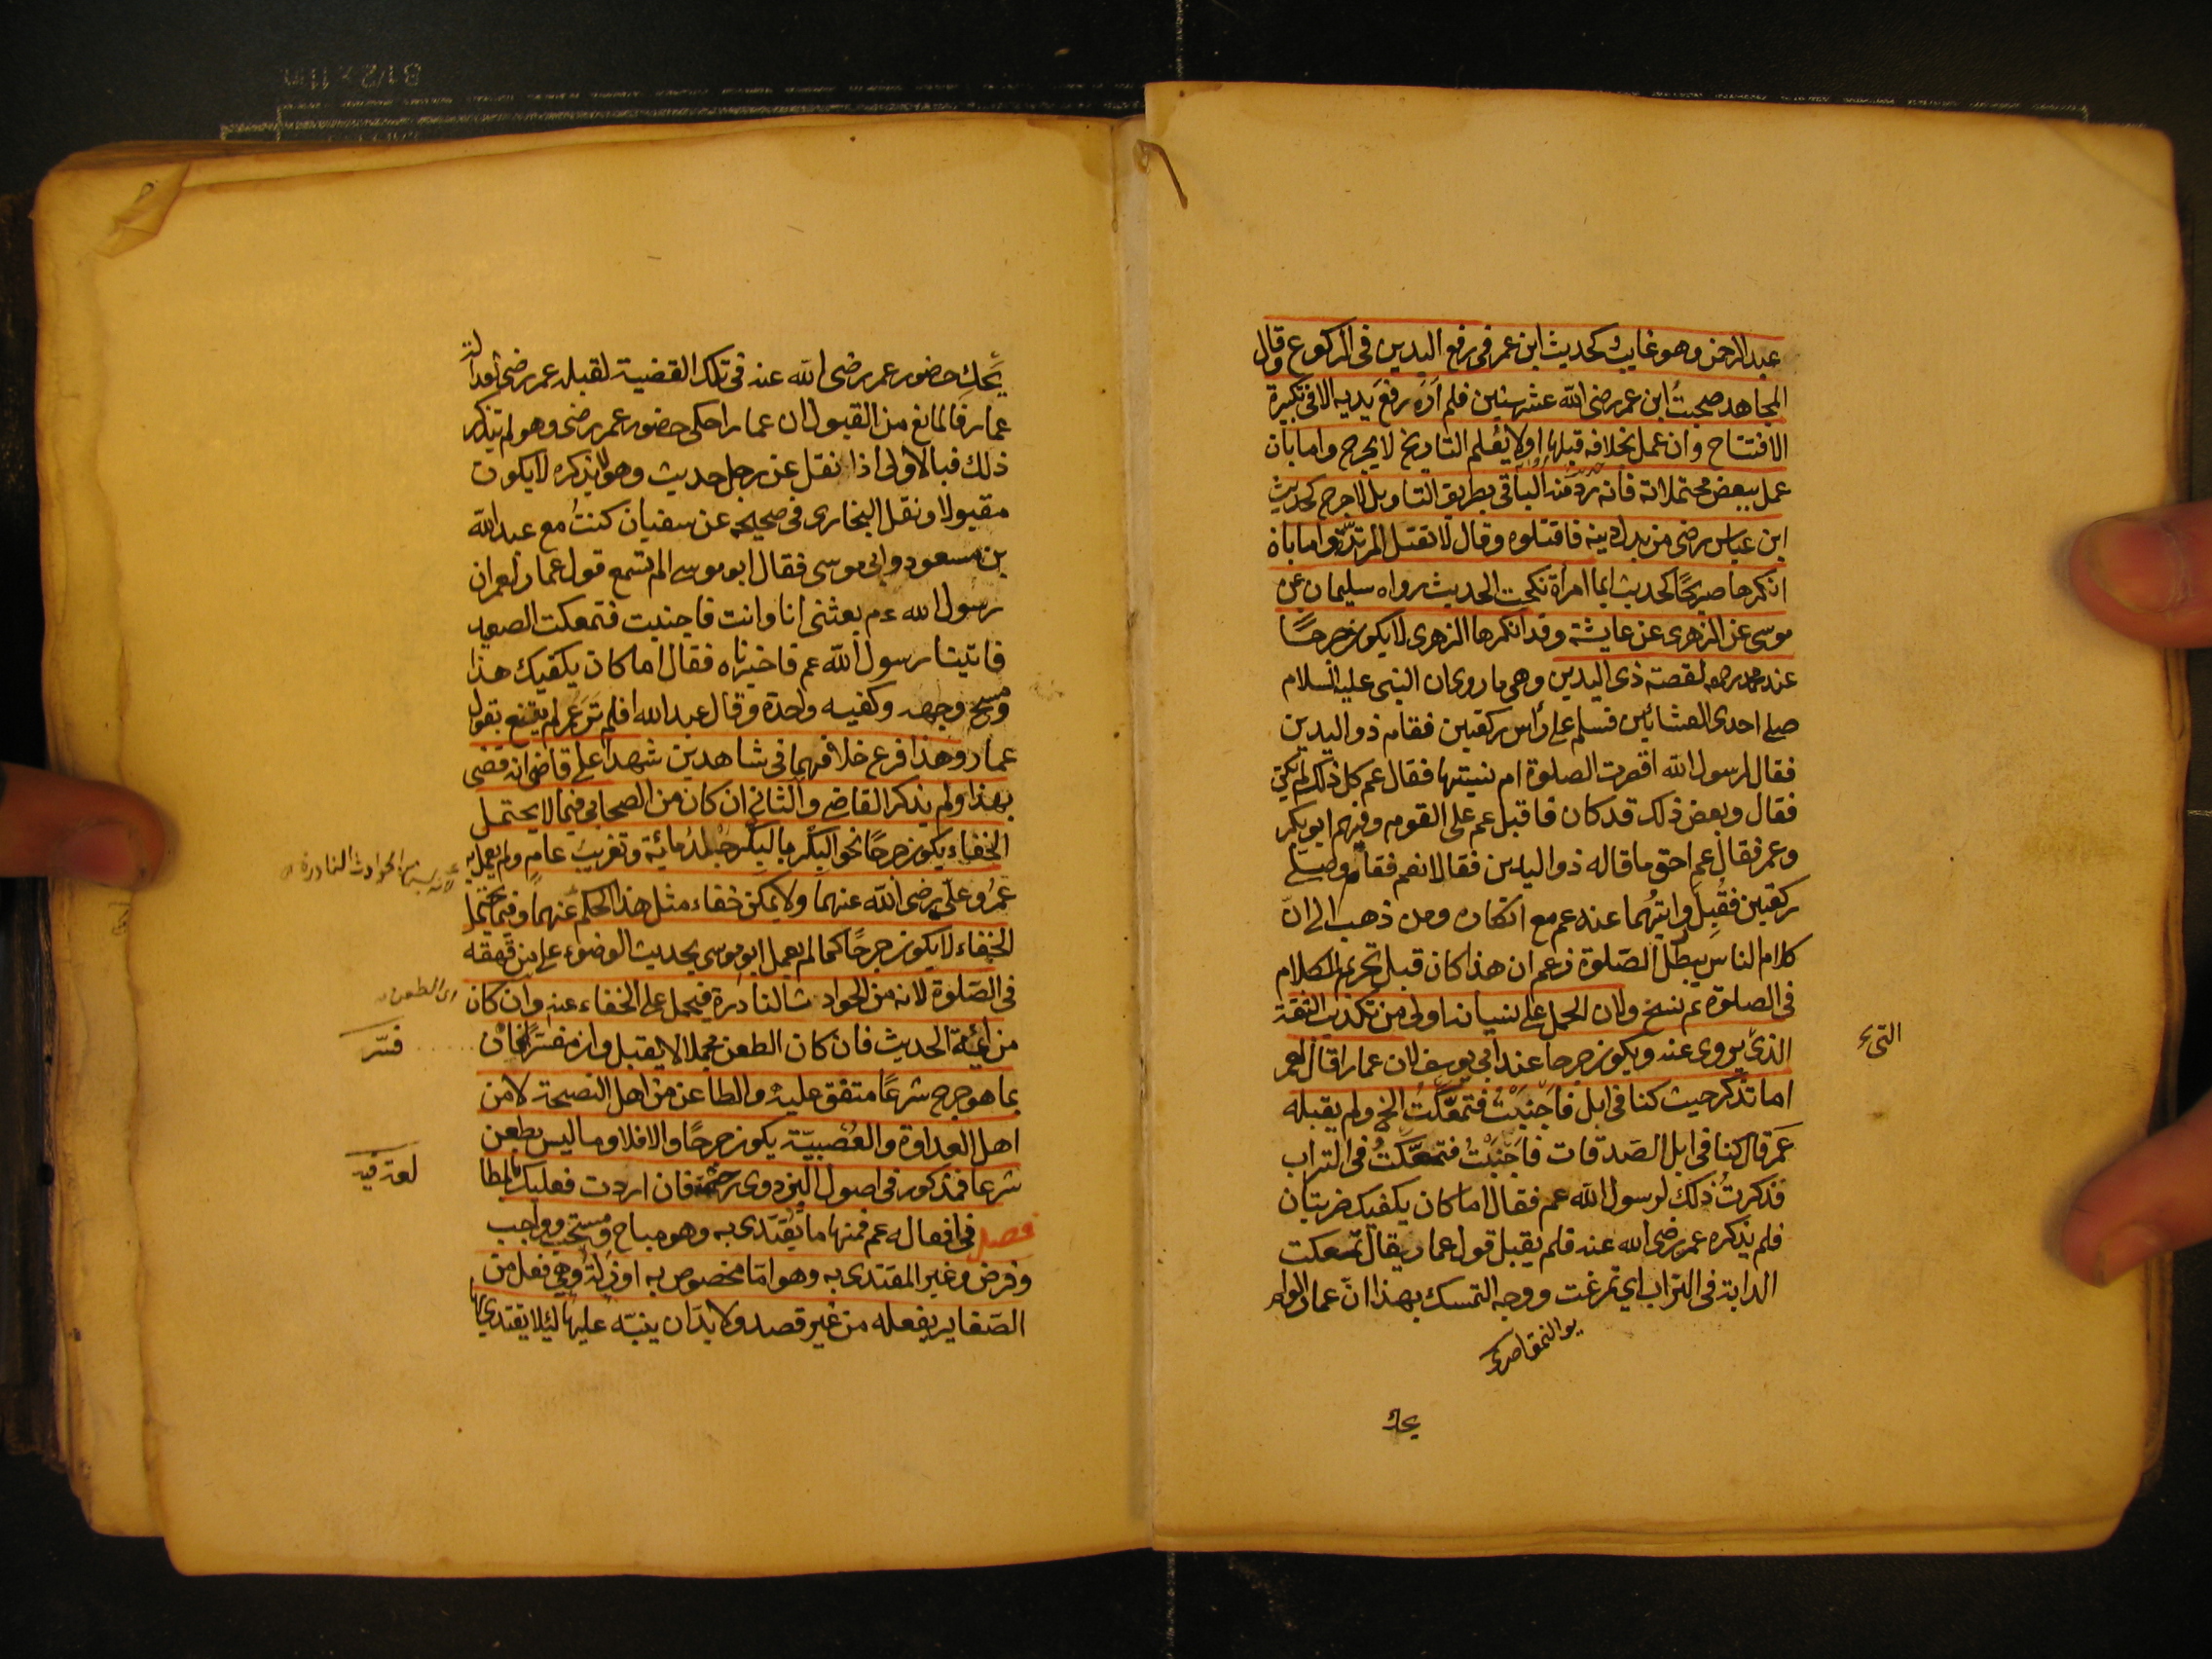 عبد الرحمن وهو غايب كحديث ابن عمر فى رفع اليدين فى الركوع وقال
المجاهد صحبت ابن عمر رضى الله عشر سنين فلم اره رفع يديه الا فى تكبيرة
الافتتاح وان عمل بخلافه قبلها او لا يعلم التاريخ لا يجرح واما بان
عمل ببعض محتملاته فانه رد منه الباقى بطريق التاويل لا جرح كحديث
ابن عباس رضى من بدل دينه فاقتلوه وقال لا تقتل المرتدة واما بان
انكرها صريحًا كحديث ايما امرأة نكحت الحديث رواه سليمان عن
موسى عن الزهرى عن عايشة وقد انكرها الزهرى لا يكون جرحًا
عند محمد رحمه لقصة ذى اليدين وهى ما روى ان النبى عليه السلام
صلى احدى العشائين فسلم على رأس ركعتين فقام ذو اليدين
فقال رسول الله اقصرت الصلوة ام نسيتها فقال عم كل ذلك لم يكن
فقال وبعض ذلك قد كان فاقبل عم على القوم وفيهم ابو بكر
وعمر فقال عم احق ما قاله ذو اليدين فقالا نعم فقام وصلى
ركعتين فقبل روايتهما عنه عم مع انكاره ومن ذهب الى ان
كلام الناس يبطل الصّلوة زعم ان هذا كان قبل تحريم الكلام
فى الصلوة ثم نسخ ولان الحمل على نسيانه اولى من تكذيب الثقة
الذى يروى عنه ويكون جرحا عند ابى يوسف لان عمارا قال لعمر
اما تذكر حيث كنا فى ابل فاجنبت فتمعّكت الخ ولم يقبله
عمر قال كنا فى ابل الصّدقات فاجنبت فتمعّكت فى التراب
فذكرت ذلك لرسول الله عم فقال اما كان يكفيك ضربتان
فلم يذكره عمر رضى الله عنه فلم يقبل قول عمار يقال تمعكت
الدابة فى التراب اي تمرغت ووجه التمسك بهذا انّ عمارا لو لم
يحك
يحك حضور عمر رضى الله عنه فى تلك القضية لقبله عمر رضى لعدالة
عمار فالمانع من القبول ان عمارا حكى حضور عمر رضى وهو لم يتذكر
ذلك فبالاولى اذا نقل عن رجل حديث وهو لا يذكره لا يكون
مقبولا ونقل البخارى فى صحيحه عن سفيان كنت مع عبد الله
بن مسعود وابى موسى فقال ابو موسى الم تسمع قول عمار لعمر ان
رسول الله عم بعثنى انا وانت فاجنبت فتمعكت الصعيد
فاتينا رسول الله عم فاخبرناه فقال اما كان يكفيك هذا
ومسح وجهه وكفيه واحدة وقال عبد الله افلم تر عمر لم يقنع بقول
عمار وهذا فرع خلافهما فى شاهدين شهدا على قاض انه قضى
بهذا ولم يذكر القاضى والثانى ان كان من الصحابى فيما لا يحتمل
الخفاء يكون جرحًا نحو البكر بالبكر جلد مائة وتغريب عام ولم يعمل به
عمر وعلى رضى الله عنهما ولا يمكن خفاء مثل هذا الحكم عنهما وفيما يحتمل
الخفاء لا يكون جرحًا كما لم يعمل ابو موسى بحديث الوضوء على من قهقه
فى الصّلوة لانه من الحوادث النادرة فيحمل على الخفاء عنه وان كان
اى الطعن
من ائمة الحديث فان كان الطعن مجملا لا يقبل وان مفسرًا فان
فسّر
بما هو جرح شرعًا متفق عليه والطاعن من اهل النصيحة لا من
اهل العداوة والعصبيّة يكون جرحًا والا فلا وما ليس بطعن
شرعا فمذكور فى اصول البزدوى رحمه فان اردت فعليك بالمطا
لعة فيه
فصل فى افعاله عم فمنها ما يقتدى به وهو مباح ومستحب وواجب
وفرض وغير المقتدى به وهو امّا مخصوص به او زلة وهى فعل من
الصّغاير يفعله من غير قصد ولا بدّ ان ينبّه عليها لئلا يقتدى بها